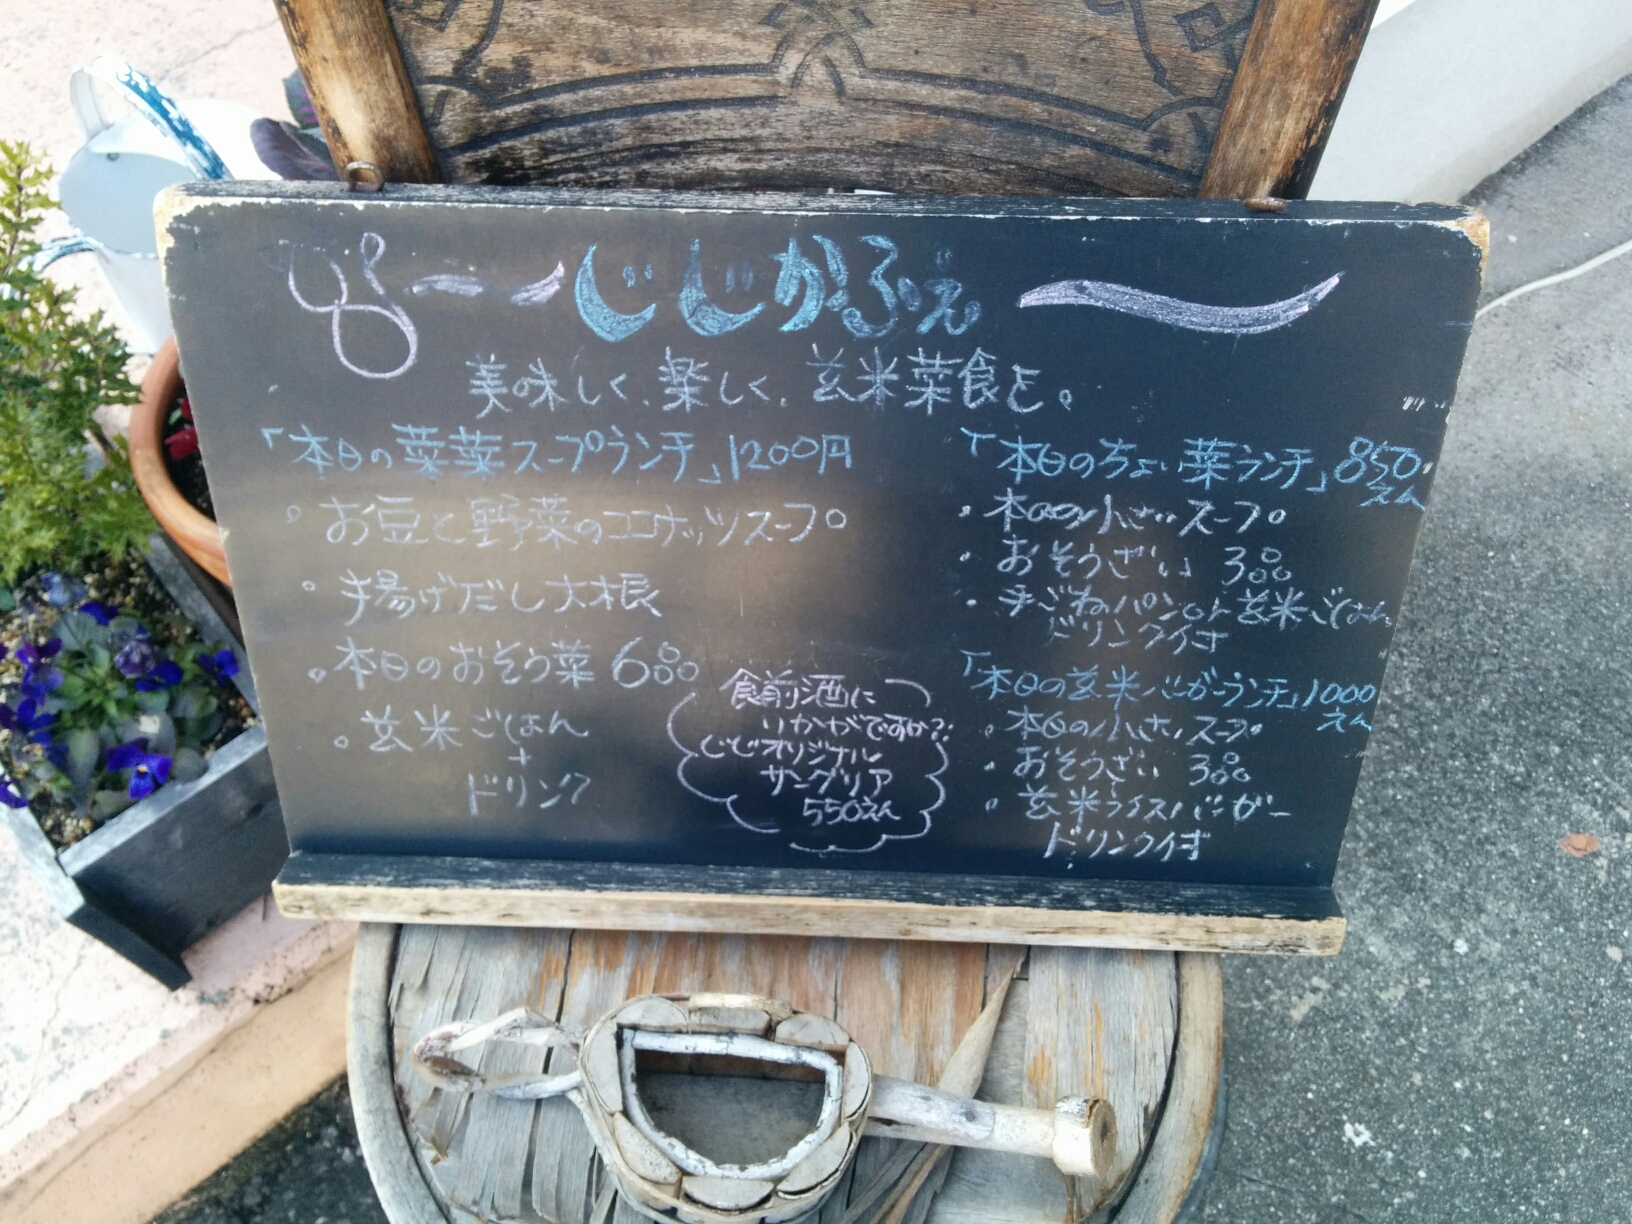 じじかふぇ
美味しく、楽しく、玄米菜食を。
「本日の菜菜スープランチ」1200円
。お豆と野菜のココナッツスープ
。揚げだし大根
。本日のおそう菜 6品
。玄米ごはん
+
ドリンク
食前酒に
いかがですか?
じじオリジナル
サングリア
550えん
「本日のちょい菜ランチ」850
えん
・本日の小さいスープ
・おそうざい 3品
・手ごねパンor玄米ごはん
ドリンク付
「本日の玄米バーガーランチ」1000
えん
・本日の小さいスープ
・おそうざい 3品
・玄米ライスバーガー
ドリンク付